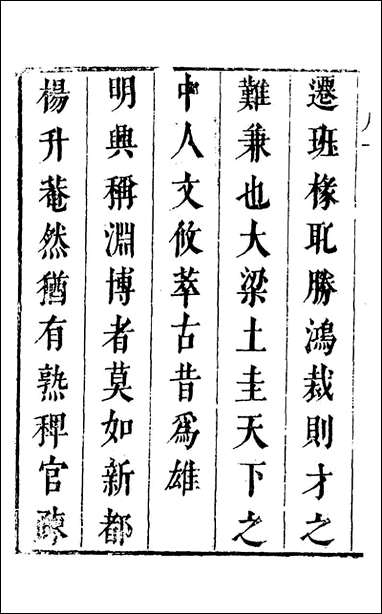 遷班椽耻勝鴻裁則才之
難兼也大梁土圭天下之
中人文攸萃古昔爲雄
明興稱淵博者莫如新都
楊升菴然猶有熟稗官疎